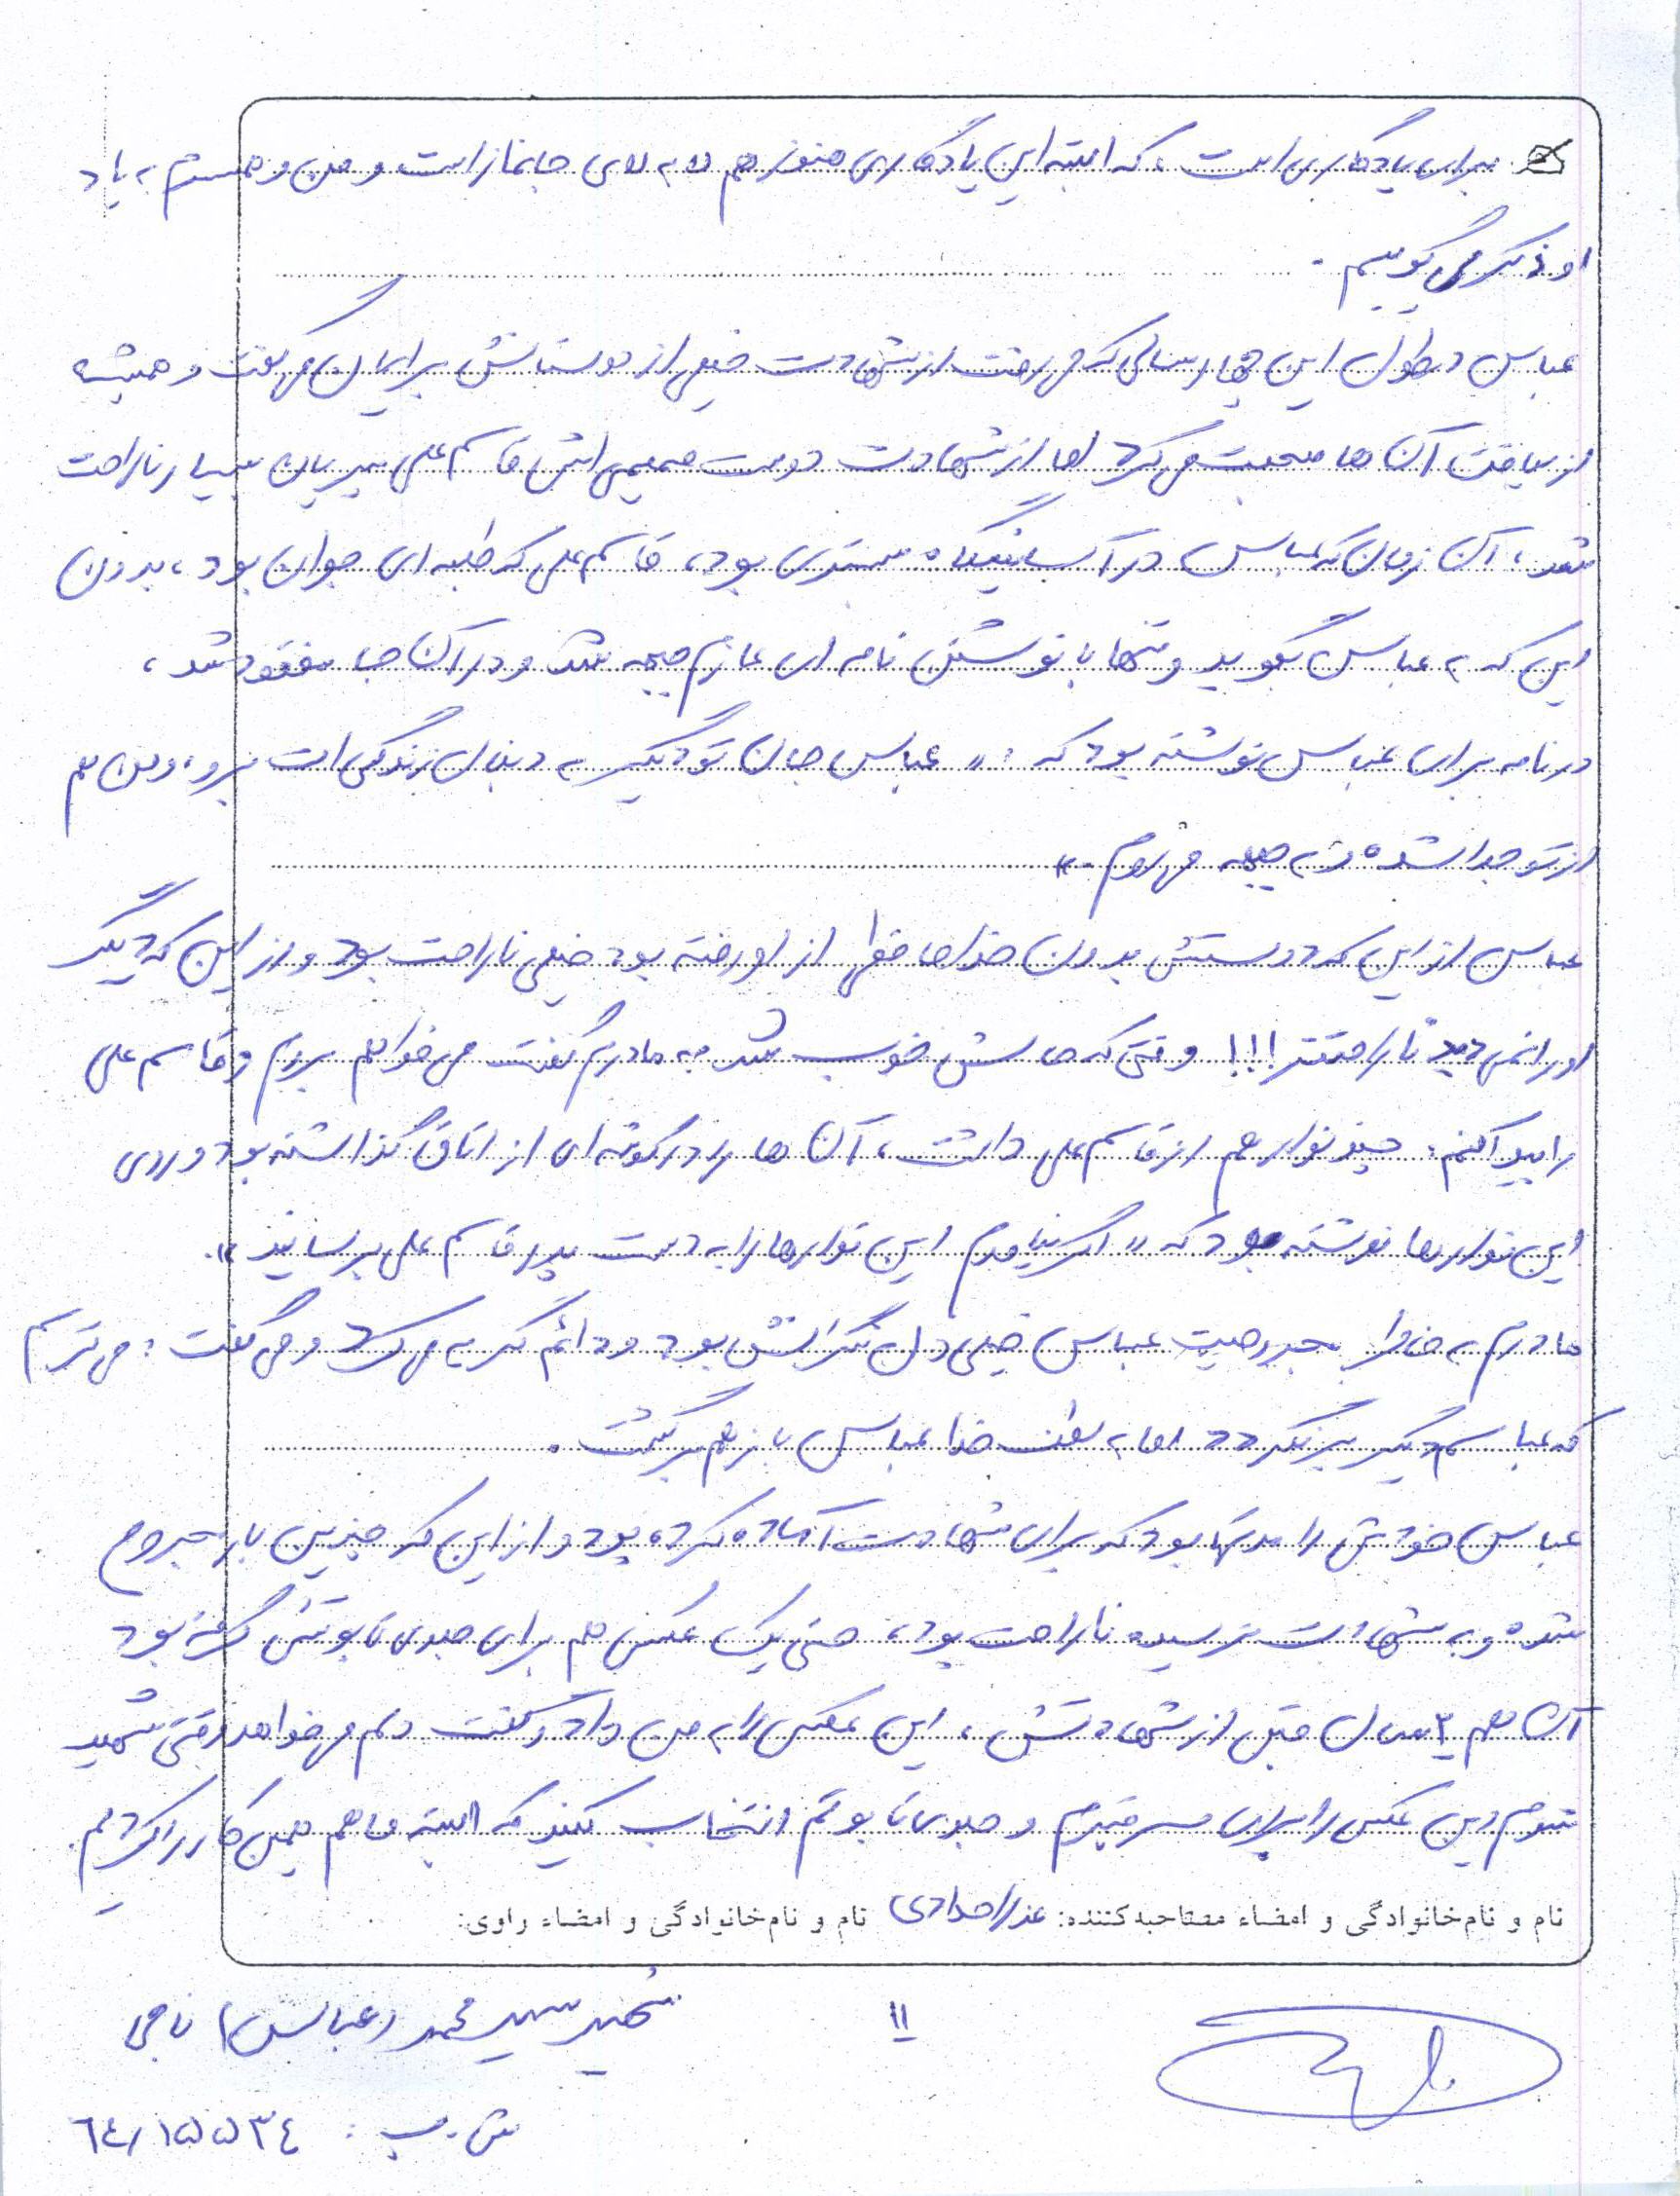 برای یادگاری است، که البته این یادگاری هنوز هم لا به لای جانماز است و من و همسرم به یاد
او ذکر می گوییم.
عباس در طول این چهار سالی که می رفت از شهادت خیلی از دوستانش برایمان می گفت و همیشه
از لیاقت آن ها صحبت می کرد اما از شهادت دوست صمیمی اش قاسم علی بسیار ناراحت
شد، آن زمان که عباس در آسایشگاه بستری بود، قاسم علی که طلبه ای جوان بود، بدون
این که به عباس بگوید و تنها با نوشتن نامه ای عازم جبهه شد و در آن جا مفقود شد،
در نامه برای عباس نوشته بود که: «عباس جان تو دیگر به دنبال زندگی ات برو، و من هم
از تو جدا شده و به جبهه می روم.»
عباس از این که دوستش بدون خداحافظی از او رفته بود خیلی ناراحت بود و از این که دیگر
او را نمی دید ناراحتتر!!! وقتی که حالش خوب شد به مادرم گفت می خواهم بروم و قاسم علی
را پیدا کنم. چند نوار هم از قاسم علی داشت، آن ها را در گوشه ای از اتاق گذاشته بود و روی
این نوارها نوشته بود که «اگر نیامدم این نوارها را به دست پدر قاسم علی برسانید».
مادرم به خاطر مجروحیت عباس خیلی دل نگرانش بود و دائم گریه می کرد و می گفت: می ترسم
که عباسم دیگر برنگردد اما به لطف خدا عباس باز هم برگشت.
عباس خودش را مدتها بود که برای شهادت آماده کرده بود و از این که چندین بار مجروح
شده و به شهادت نرسیده ناراحت بود، حتی یک عکس هم برای جلوی تابوتش گرفته بود
آن هم ۲ سال قبل از شهادتش، این عکس را به من داد و گفت دلم می خواهد وقتی شهید
شدم این عکس را برای سر قبرم و جلوی تابوتم انتخاب کنید که البته ما هم همین کار را کردیم.
نام و نام‌خانوادگی و امضاء مصاحبه‌کننده: عذرا حدادی نام و نام‌خانوادگی و امضاء راوی:
شهید سید محمد (عباس) ناجی
۱۱
ش. پ: ٦٤/۱۵۵۳٤